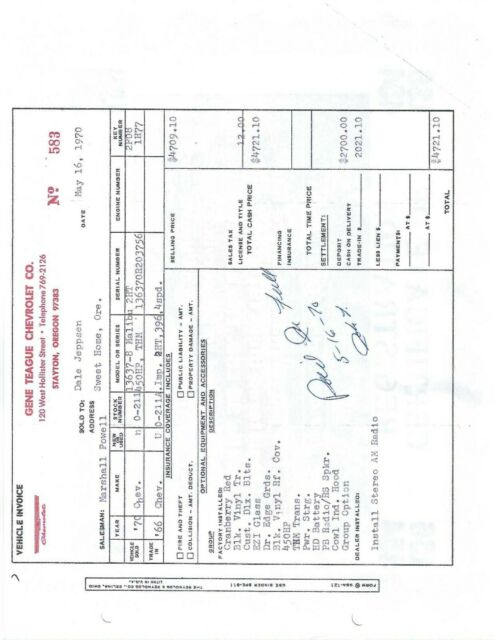 VEHICLE INVOICE
GENE TEAGUE CHEVROLET CO.
120 West Hollister Street • Telephone 769-2126
STAYTON, OREGON 97383
No 583
SALESMAN: Marshall Powell
SOLD TO: Dale Jeppsen
ADDRESS Sweet Home, Ore.
DATE May 16, 1970
YEAR MAKE NEW OR USED STOCK NUMBER MODEL OR SERIES SERIAL NUMBER ENGINE NUMBER KEY NUMBER
VEHICLE SOLD '70 Chev. n 0-211 13637-B Malibu 2HT 450HP, THM 136370B203756 2P08 1H77
TRADE IN '66 Chev. U 0-211A Imp. 2HT, 396, 4spd.
INSURANCE COVERAGE INCLUDES
FIRE AND THEFT PUBLIC LIABILITY - AMT.
COLLISION - AMT. DEDUCT. PROPERTY DAMAGE - AMT.
OPTIONAL EQUIPMENT AND ACCESSORIES
GROUP DESCRIPTION
FACTORY INSTALLED:
Cranberry Red
Blk. Vinyl Tr.
Cust. Dlx. Blts.
EZI Glass
Dr. Edge Grds.
Blk. Vinyl Rf. Cov.
450HP
THM Trans.
Pwr. Strg.
HD Battery
PB Radio/RS Spkr.
Cowl Ind. Hood
Group Option
DEALER INSTALLED:
Install Stereo AM Radio
Paid In Full
5-16-70
SELLING PRICE $4709.10
SALES TAX
LICENSE AND TITLE 12.00
TOTAL CASH PRICE $4721.10
FINANCING
INSURANCE
TOTAL TIME PRICE
SETTLEMENT:
DEPOSIT $2700.00
CASH ON DELIVERY 2021.10
TRADE-IN $
LESS LIEN $
PAYMENTS: AT $
AT $
TOTAL $4721.10
THE REYNOLDS & REYNOLDS CO., CELINA, OHIO
LITHO IN U.S.A.
USE BINDER BPE-811